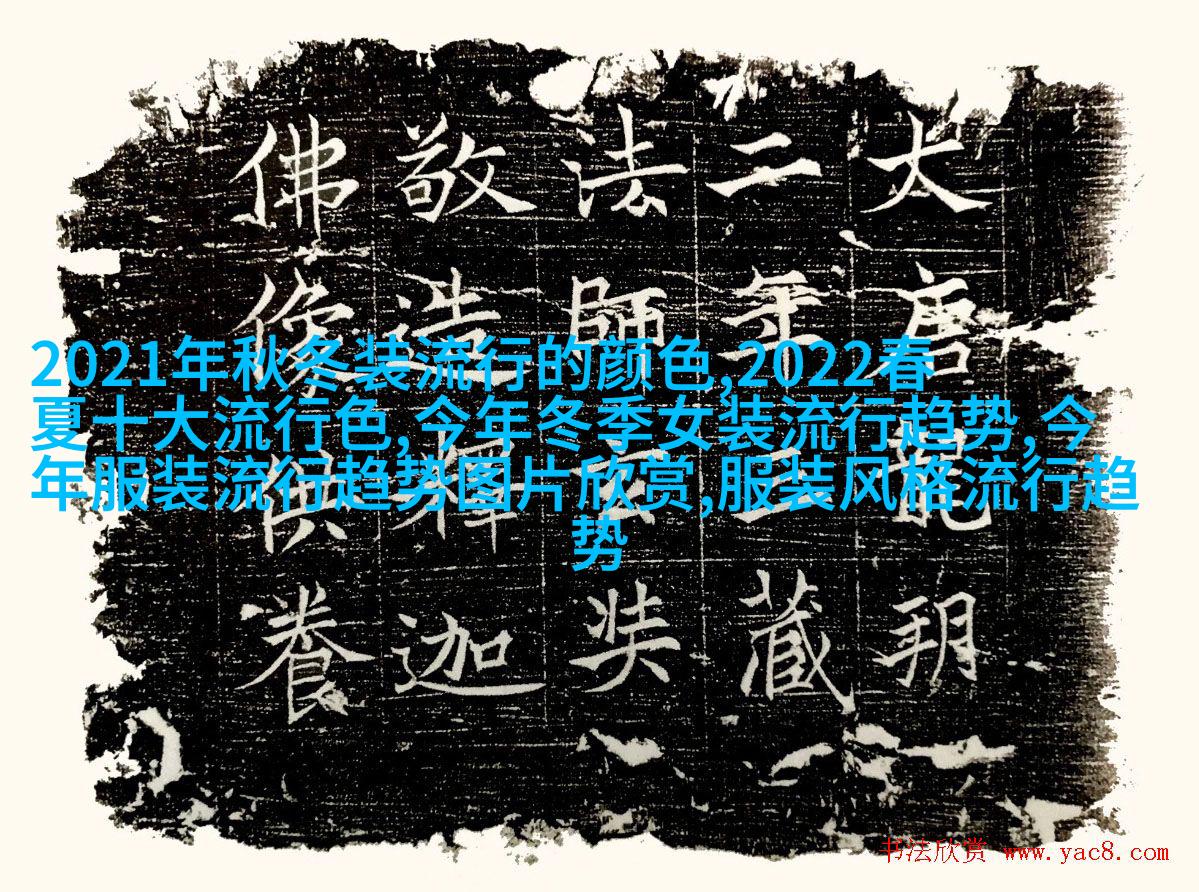 大唐龍朔
二年三藏
法師玄奘
敬造釋迦
佛像供養
2021年秋冬装流行的颜色,2022春
夏十大流行色,今年冬季女装流行趋势,今
年服装流行趋势图片欣赏,服装风格流行趋
势
书法欣赏 www.yac8.com